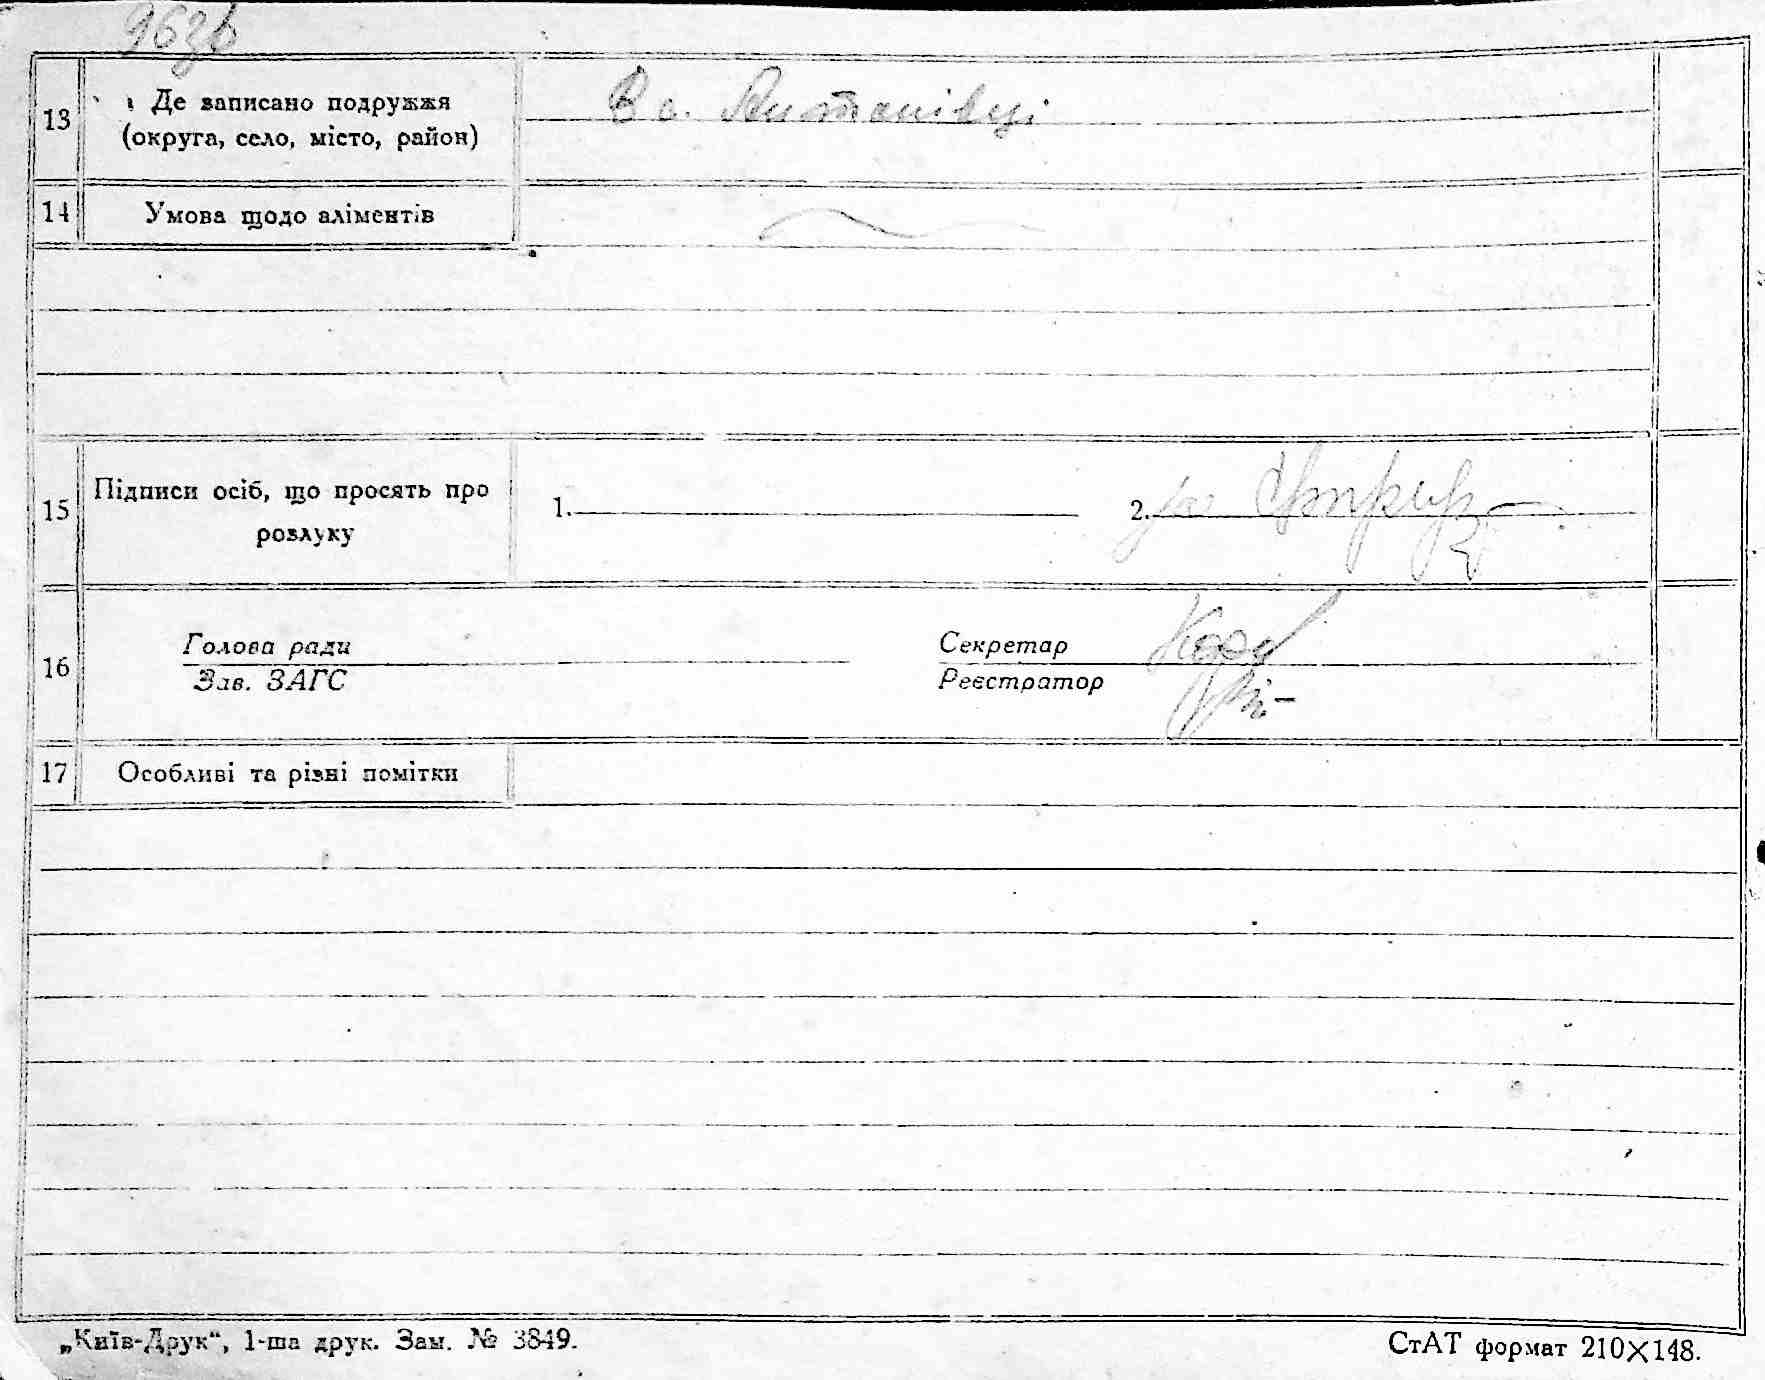 963б
13 Де записано подружжя
(округа, село, місто, район)
В с. Антонівці
14 Умова щодо аліментів
15 Підписи осіб, що просять про
розлуку
1.
2.
16 Голова ради
Зав. ЗАГС
Секретар
Реєстратор
17 Особливі та різні помітки
„Київ-Друк“, 1-ша друк. Зам. № 3849.
СтАТ формат 210×148.